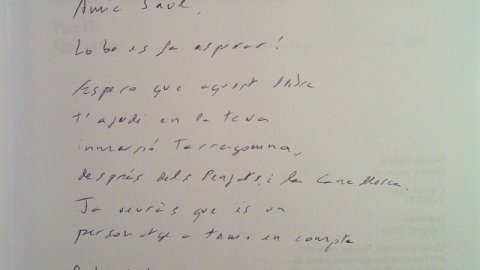 Amic Saül,
Lo bo es fa esperar!
Espero que aquest llibre
t'ajudi en la teva
immersió Tarragonina,
després dels Penjats i la Canallesca.
Ja veuràs que és un
personatge a tenir en compte